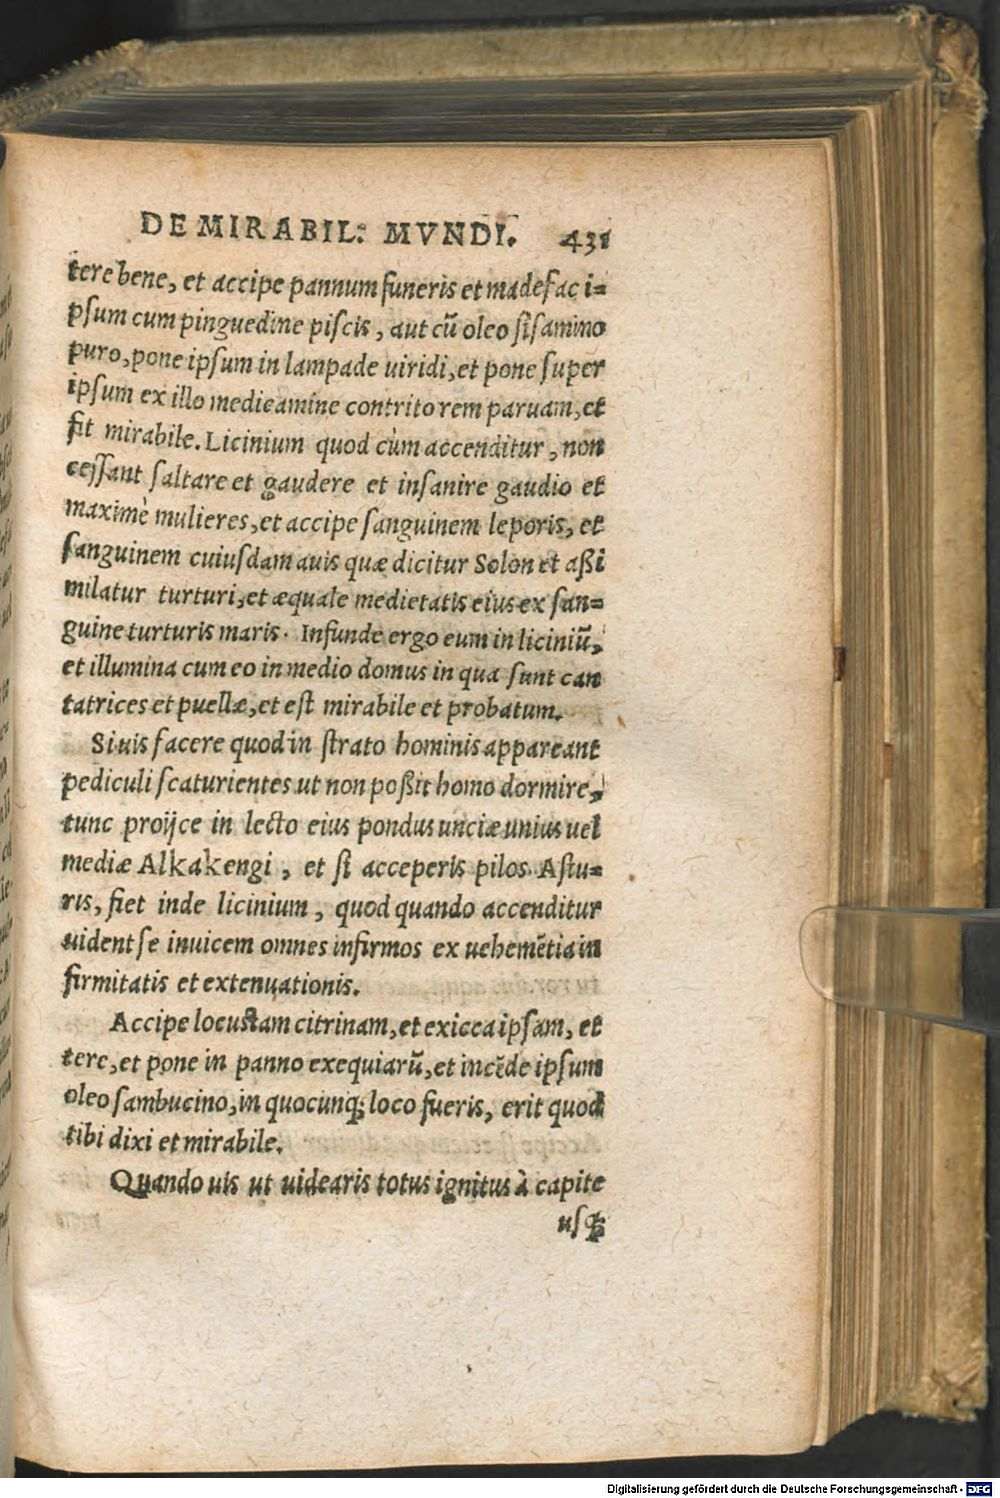 DE MIRABIL: MVNDI. 431
tere bene, et accipe pannum funeris et madefac i=
pſum cum pinguedine piſcis, aut cũ oleo ſiſamino
puro, pone ipſum in lampade uiridi, et pone ſuper
ipſum ex illo medicamine contrito rem paruam, et
fit mirabile. Licinium quod cùm accenditur, non
ceſſant ſaltare et gaudere et inſanire gaudio et
maximè mulieres, et accipe ſanguinem leporis, et
ſanguinem cuiuſdam auis quæ dicitur Solon et aßi
milatur turturi, et æquale medietatis eius ex ſan=
guine turturis maris. Infunde ergo eum in liciniũ,
et illumina cum eo in medio domus in qua ſunt can
tatrices et puellæ, et eſt mirabile et probatum.
Si uis facere quod in ſtrato hominis appareant
pediculi ſcaturientes ut non poßit homo dormire,
tunc proijce in lecto eius pondus unciæ unius uel
mediæ Alkakengi, et ſi acceperis pilos Aſtu=
ris, fiet inde licinium, quod quando accenditur
uident ſe inuicem omnes infirmos ex uehemẽtia in
firmitatis et extenuationis.
Accipe locuſtam citrinam, et exicca ipſam, et
tere, et pone in panno exequiarũ, et incẽde ipſum
oleo ſambucino, in quocunq; loco fueris, erit quod
tibi dixi et mirabile.
Quando uis ut uidearis totus ignitus à capite
uſq;
Digitalisierung gefördert durch die Deutsche Forschungsgemeinschaft - DFG